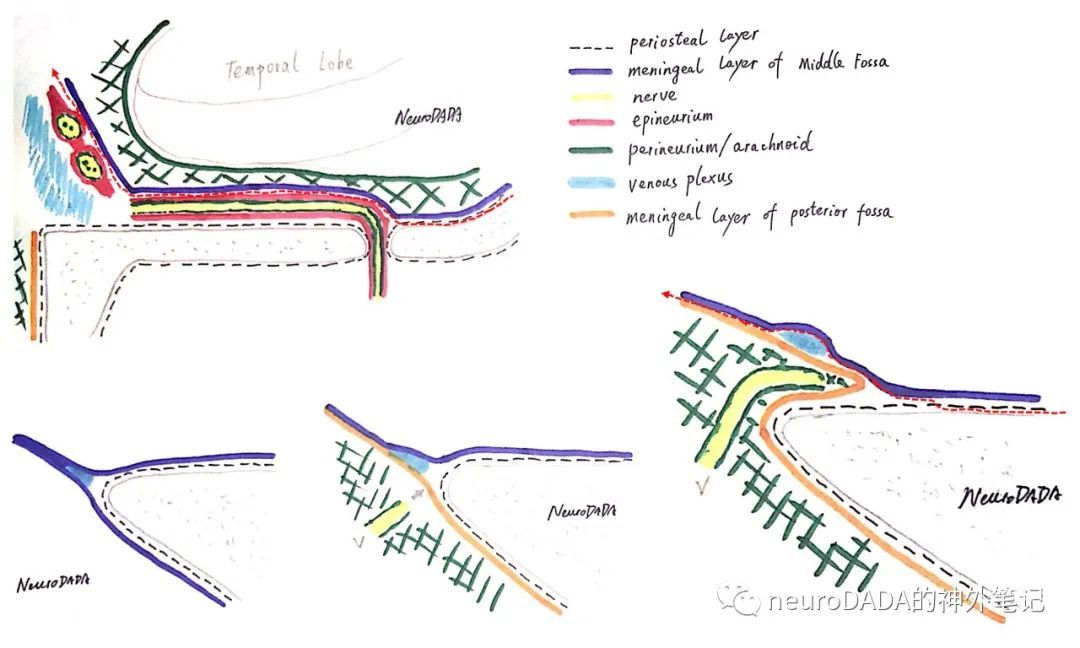 Temporal Lobe
NeuroDADA
periosteal layer
meningeal layer of Middle Fossa
nerve
epineurium
perineurium/arachnoid
venous plexus
meningeal layer of posterior fossa
NeuroDADA
V
NeuroDADA
V
NeuroDADA
neuroDADA的神外笔记